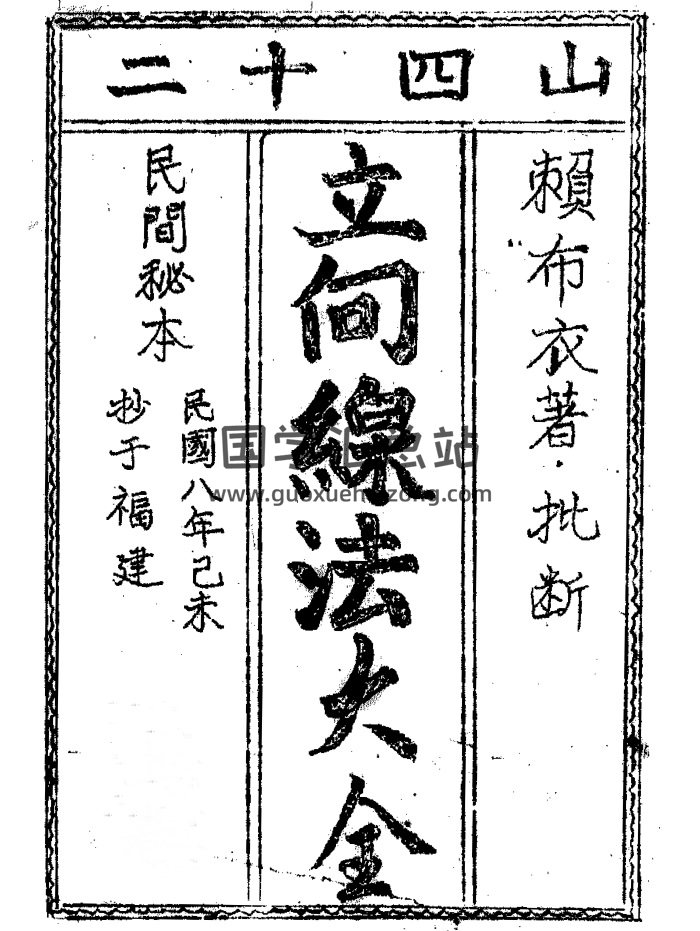 二十四山
賴布衣著·批断
立向線法大全
民間秘本
民國八年己未
抄于福建
国学汇总站
www.guoxuehuizong.com